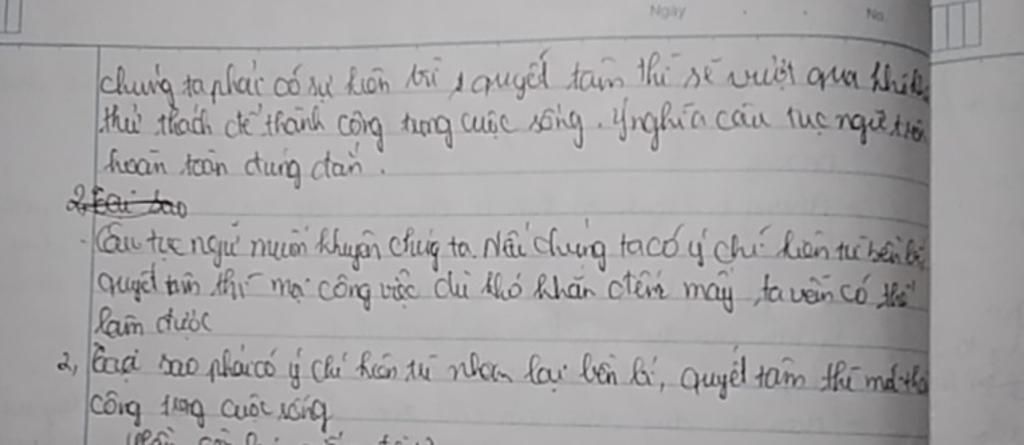 Ngày No
chúng ta phải có sự kiên trì, quyết tâm thì sẽ vượt qua khó
thử thách để thành công trong cuộc sống. Ý nghĩa câu tục ngữ trên
hoàn toàn đúng đắn.
2, Tại sao
- Câu tục ngữ muốn khuyên chúng ta. Nếu chúng ta có ý chí kiên trì bền bỉ
quyết tâm thì mọi công việc dù khó khăn đến mấy, ta vẫn có thể
làm được
2, Tại sao phải có ý chí kiên trì nhẫn lại bền bỉ, quyết tâm thì mới
công trong cuộc sống